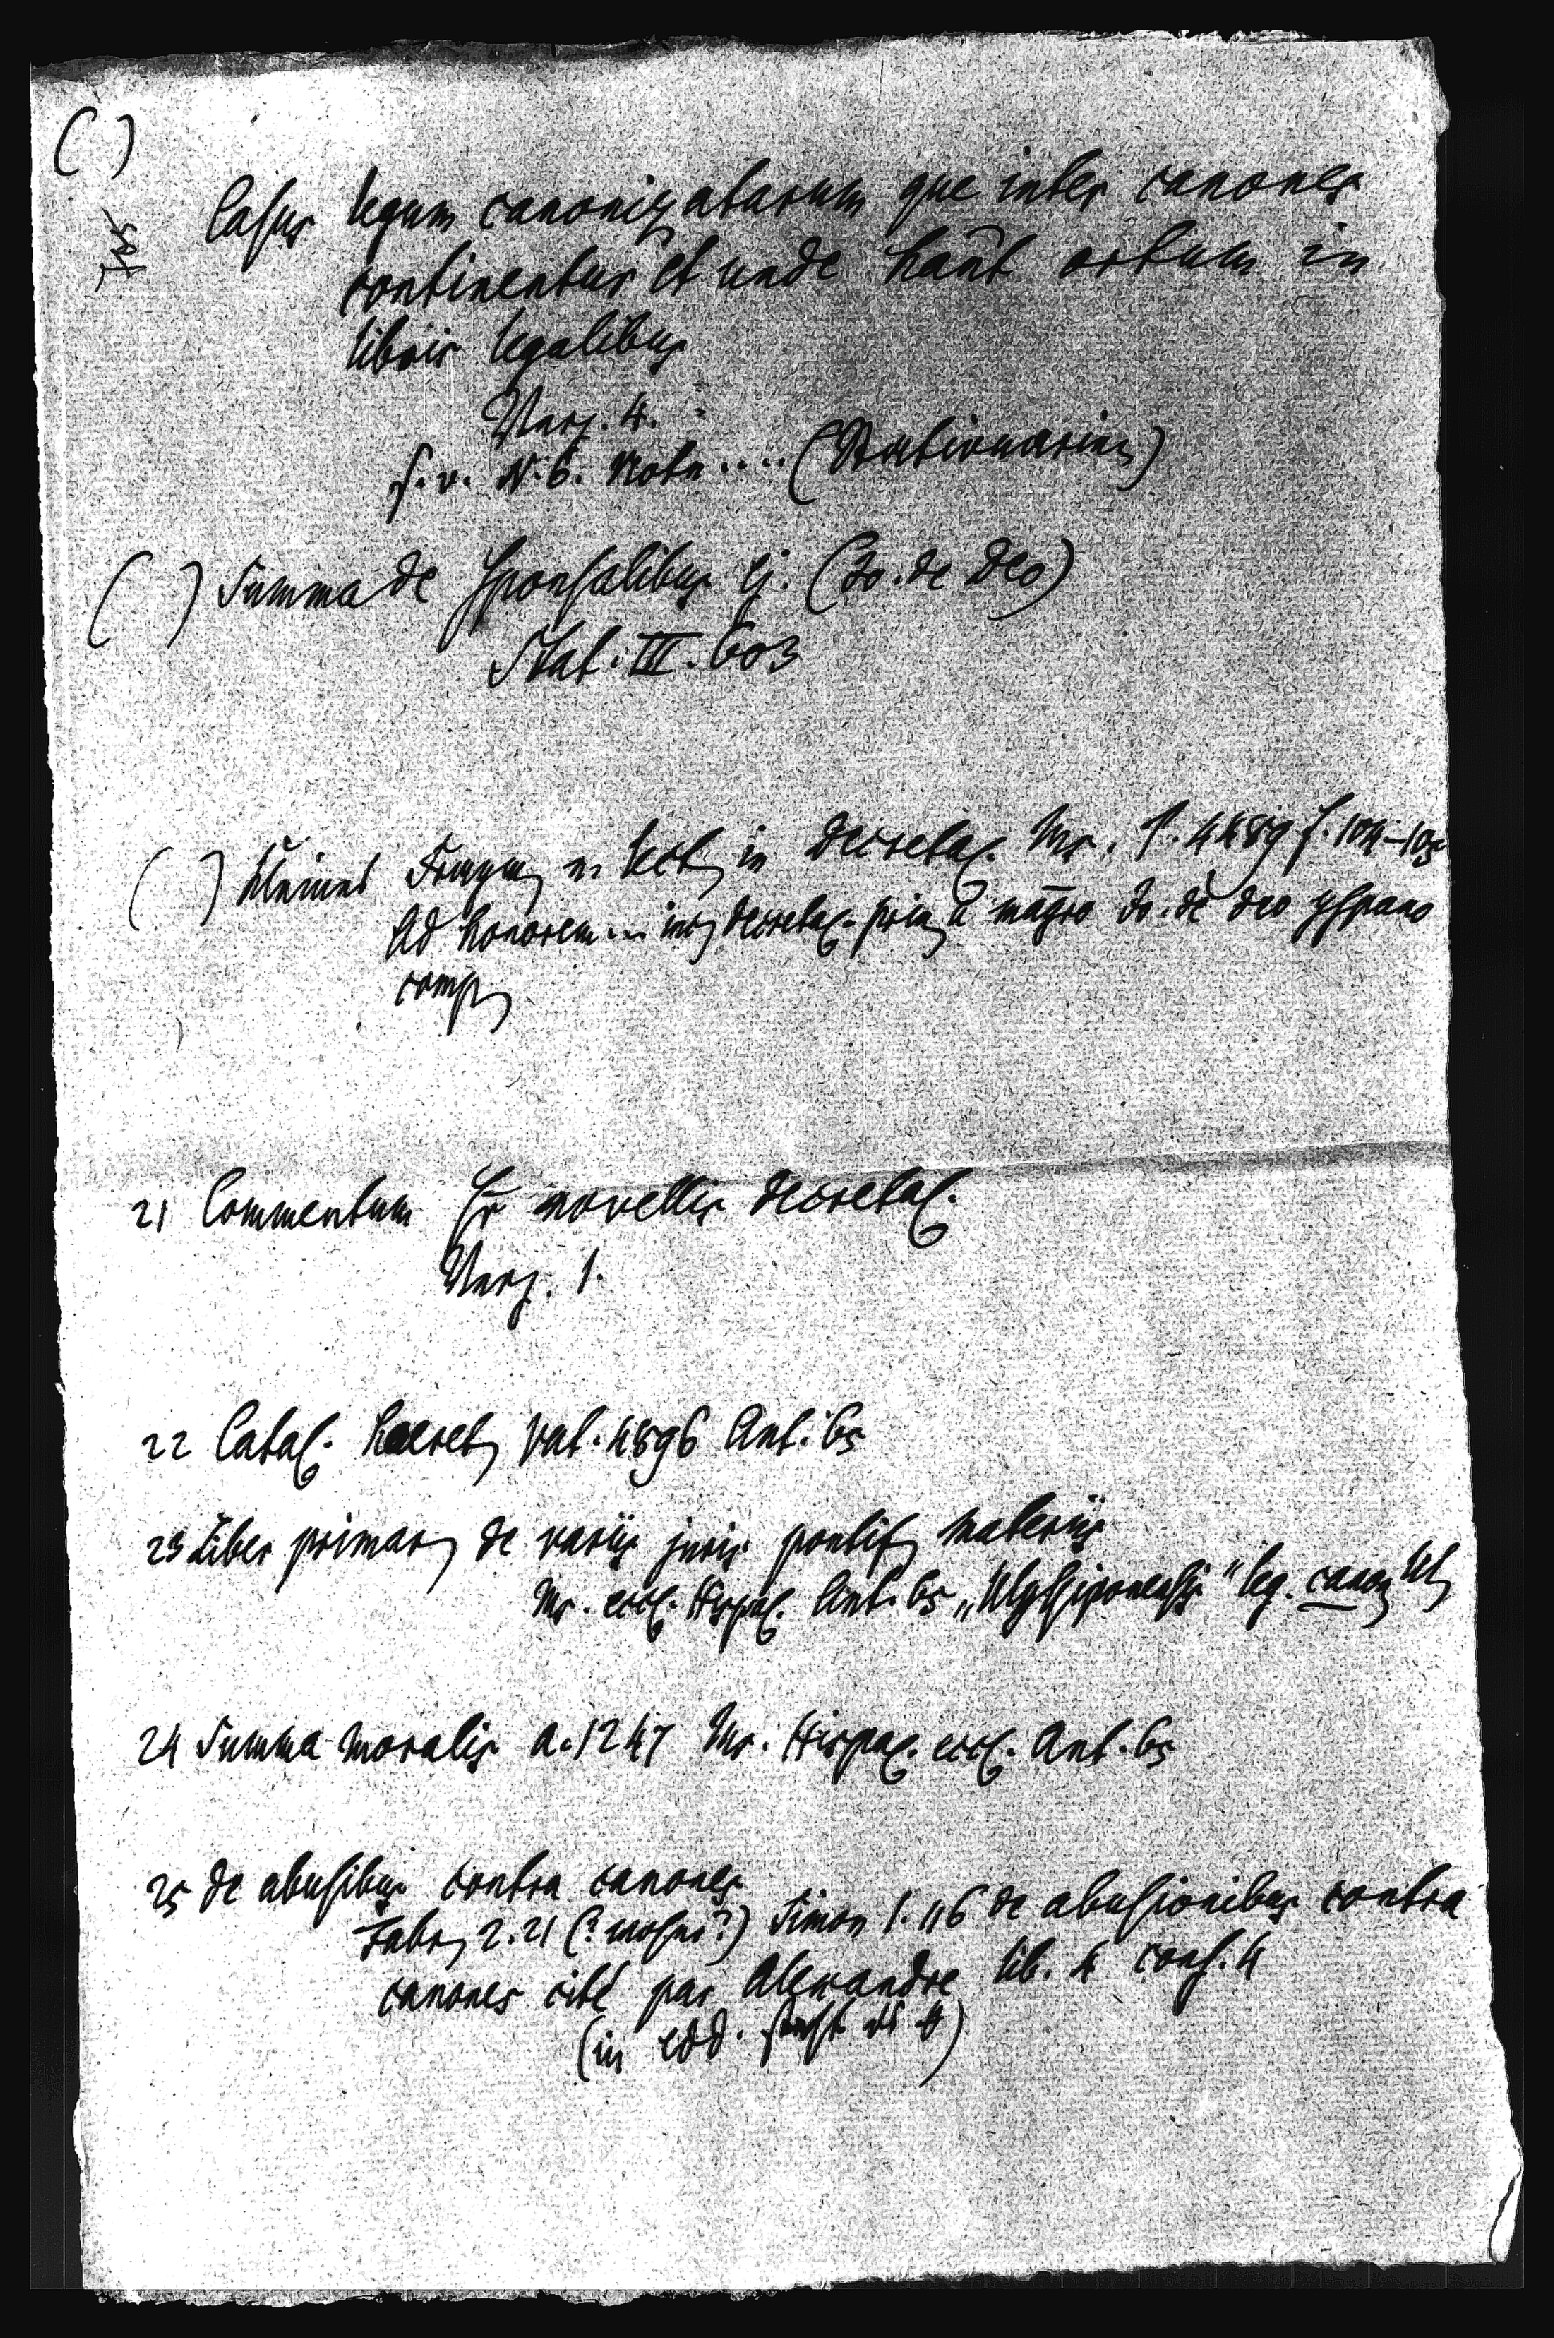 ( )
Casus legum canonizatarum que inter canones
continentur et unde hant ortum in
libris legalibus
Varz. 4.
f. v. N. 6. Nota .... (Rubricarius)
( ) Summa de sponsalibus ej. (Jo. de Deo)
Stat. III. 603
( ) kleines Fragm in decretal. Ms. P. 4489 f. 104-105
Ad honorem ... decretal. a magro Jo. de deo yspano
comp
21 Commentum Sr novellis decretal.
Varz. 1.
22 Catal. haeret Vat. 4896 Ant. 65
23 Liber primar de variis juris pontif materiis
Ms. eccl. Hispal. Ant. 65 „Ulyssiponensis" leg. canon Ul
24 Summa moralis a. 1247 Ms. Hispal. eccl. Ant. 65
25 de abusibus contra canones
Fabr 2. 21 (? ?) Simon 1. 116 de abusionibus contra
canones cité par Alexandre lib. 4 cons. 4
(in edd.